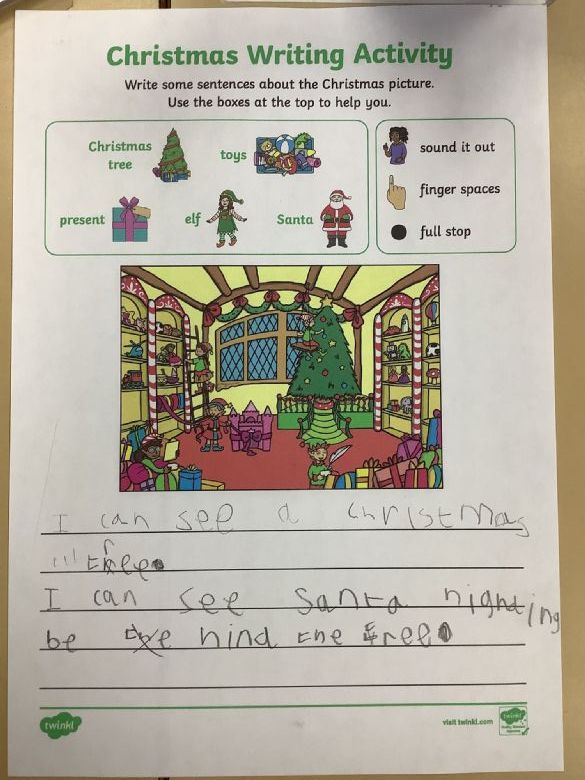 Christmas Writing Activity
Write some sentences about the Christmas picture.
Use the boxes at the top to help you.
Christmas tree
toys
present
elf
Santa
sound it out
finger spaces
full stop
I can see a christmas
tree.
I can see Santa highding
be hind the tree.
twinkl
visit twinkl.com
twinkl